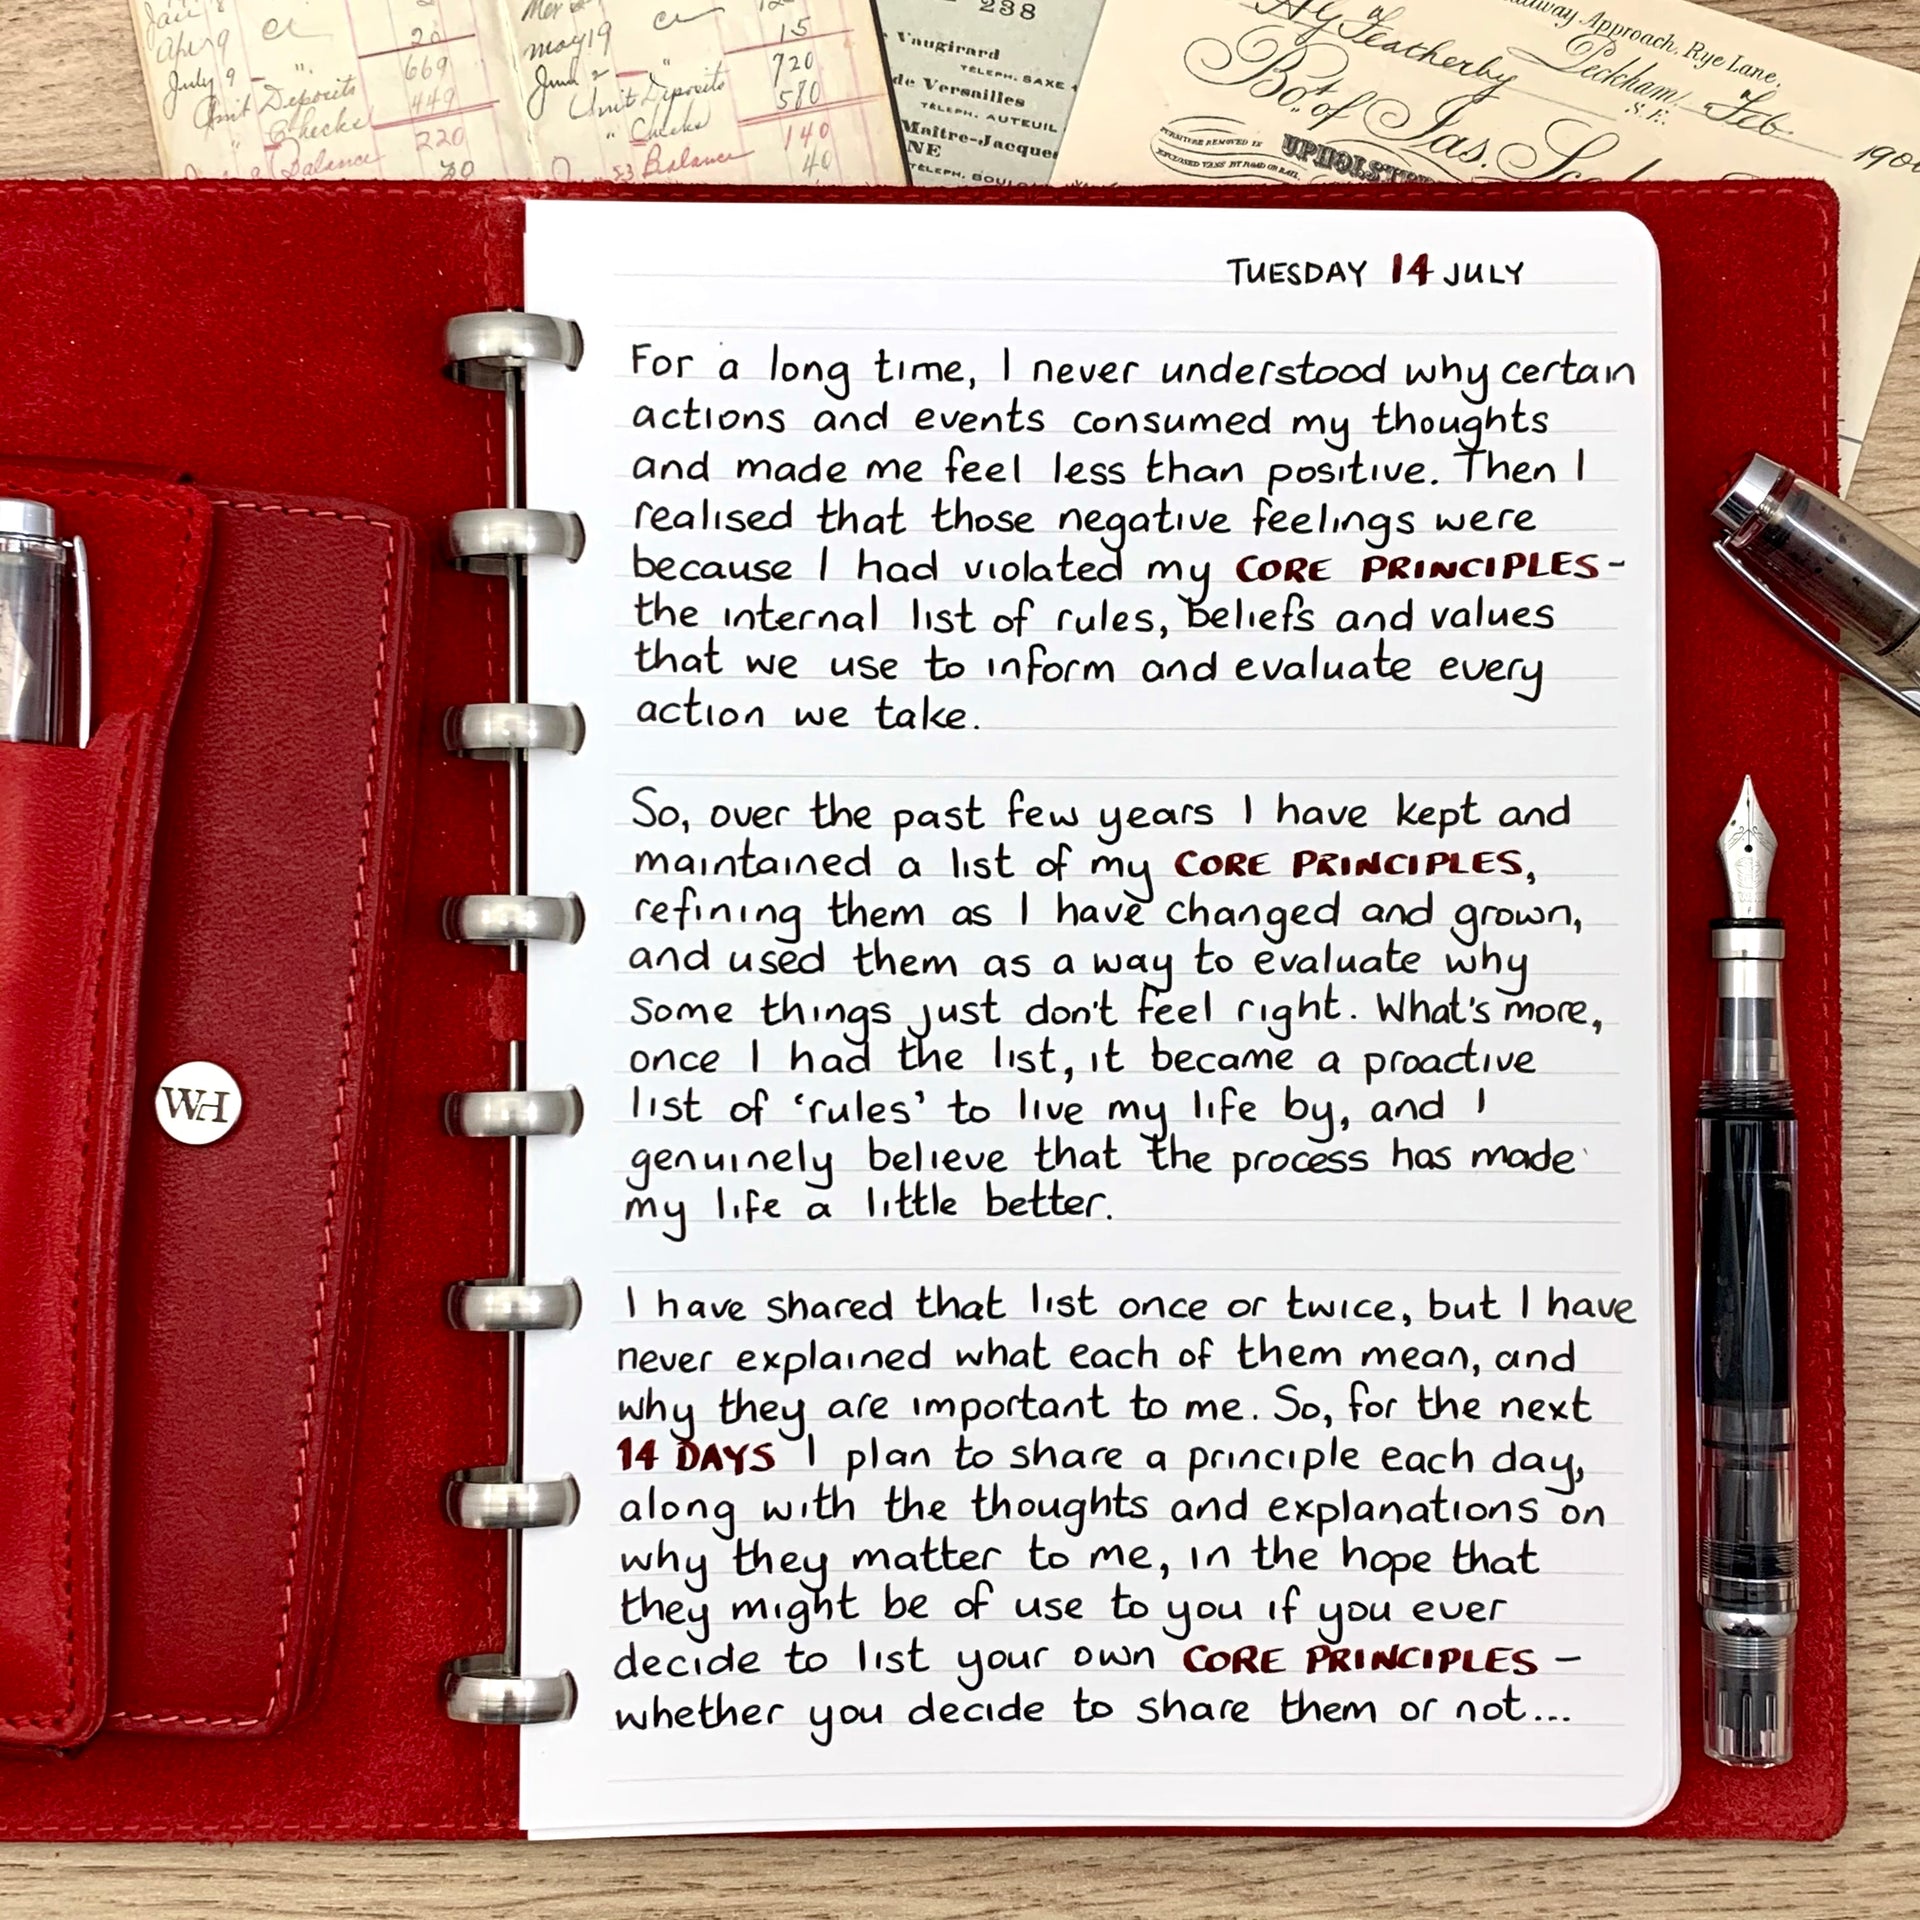 July 9
669
Unit Deposits
449
Checks
220
Balance
30
may 19
15
720
June 2
Unit Deposits
580
" Checks
140
Balance
40
238
Vaugirard
TÉLEPH. SAXE
de Versailles
TÉLEPH. AUTEUIL
Maître-Jacques
NE
TÉLEPH.
Approach, Rye Lane,
Peckham,
S.E.
Feb.
190
Featherby
Bot. of Jas.
FURNITURE REMOVED IN
WH
TUESDAY 14 JULY
For a long time, I never understood why certain
actions and events consumed my thoughts
and made me feel less than positive. Then I
realised that those negative feelings were
because I had violated my CORE PRINCIPLES-
the internal list of rules, beliefs and values
that we use to inform and evaluate every
action we take.
So, over the past few years I have kept and
maintained a list of my CORE PRINCIPLES,
refining them as I have changed and grown,
and used them as a way to evaluate why
some things just don't feel right. What's more,
once I had the list, it became a proactive
list of 'rules' to live my life by, and I
genuinely believe that the process has made
my life a little better.
I have shared that list once or twice, but I have
never explained what each of them mean, and
why they are important to me. So, for the next
14 DAYS I plan to share a principle each day,
along with the thoughts and explanations on
why they matter to me, in the hope that
they might be of use to you if you ever
decide to list your own CORE PRINCIPLES -
whether you decide to share them or not...